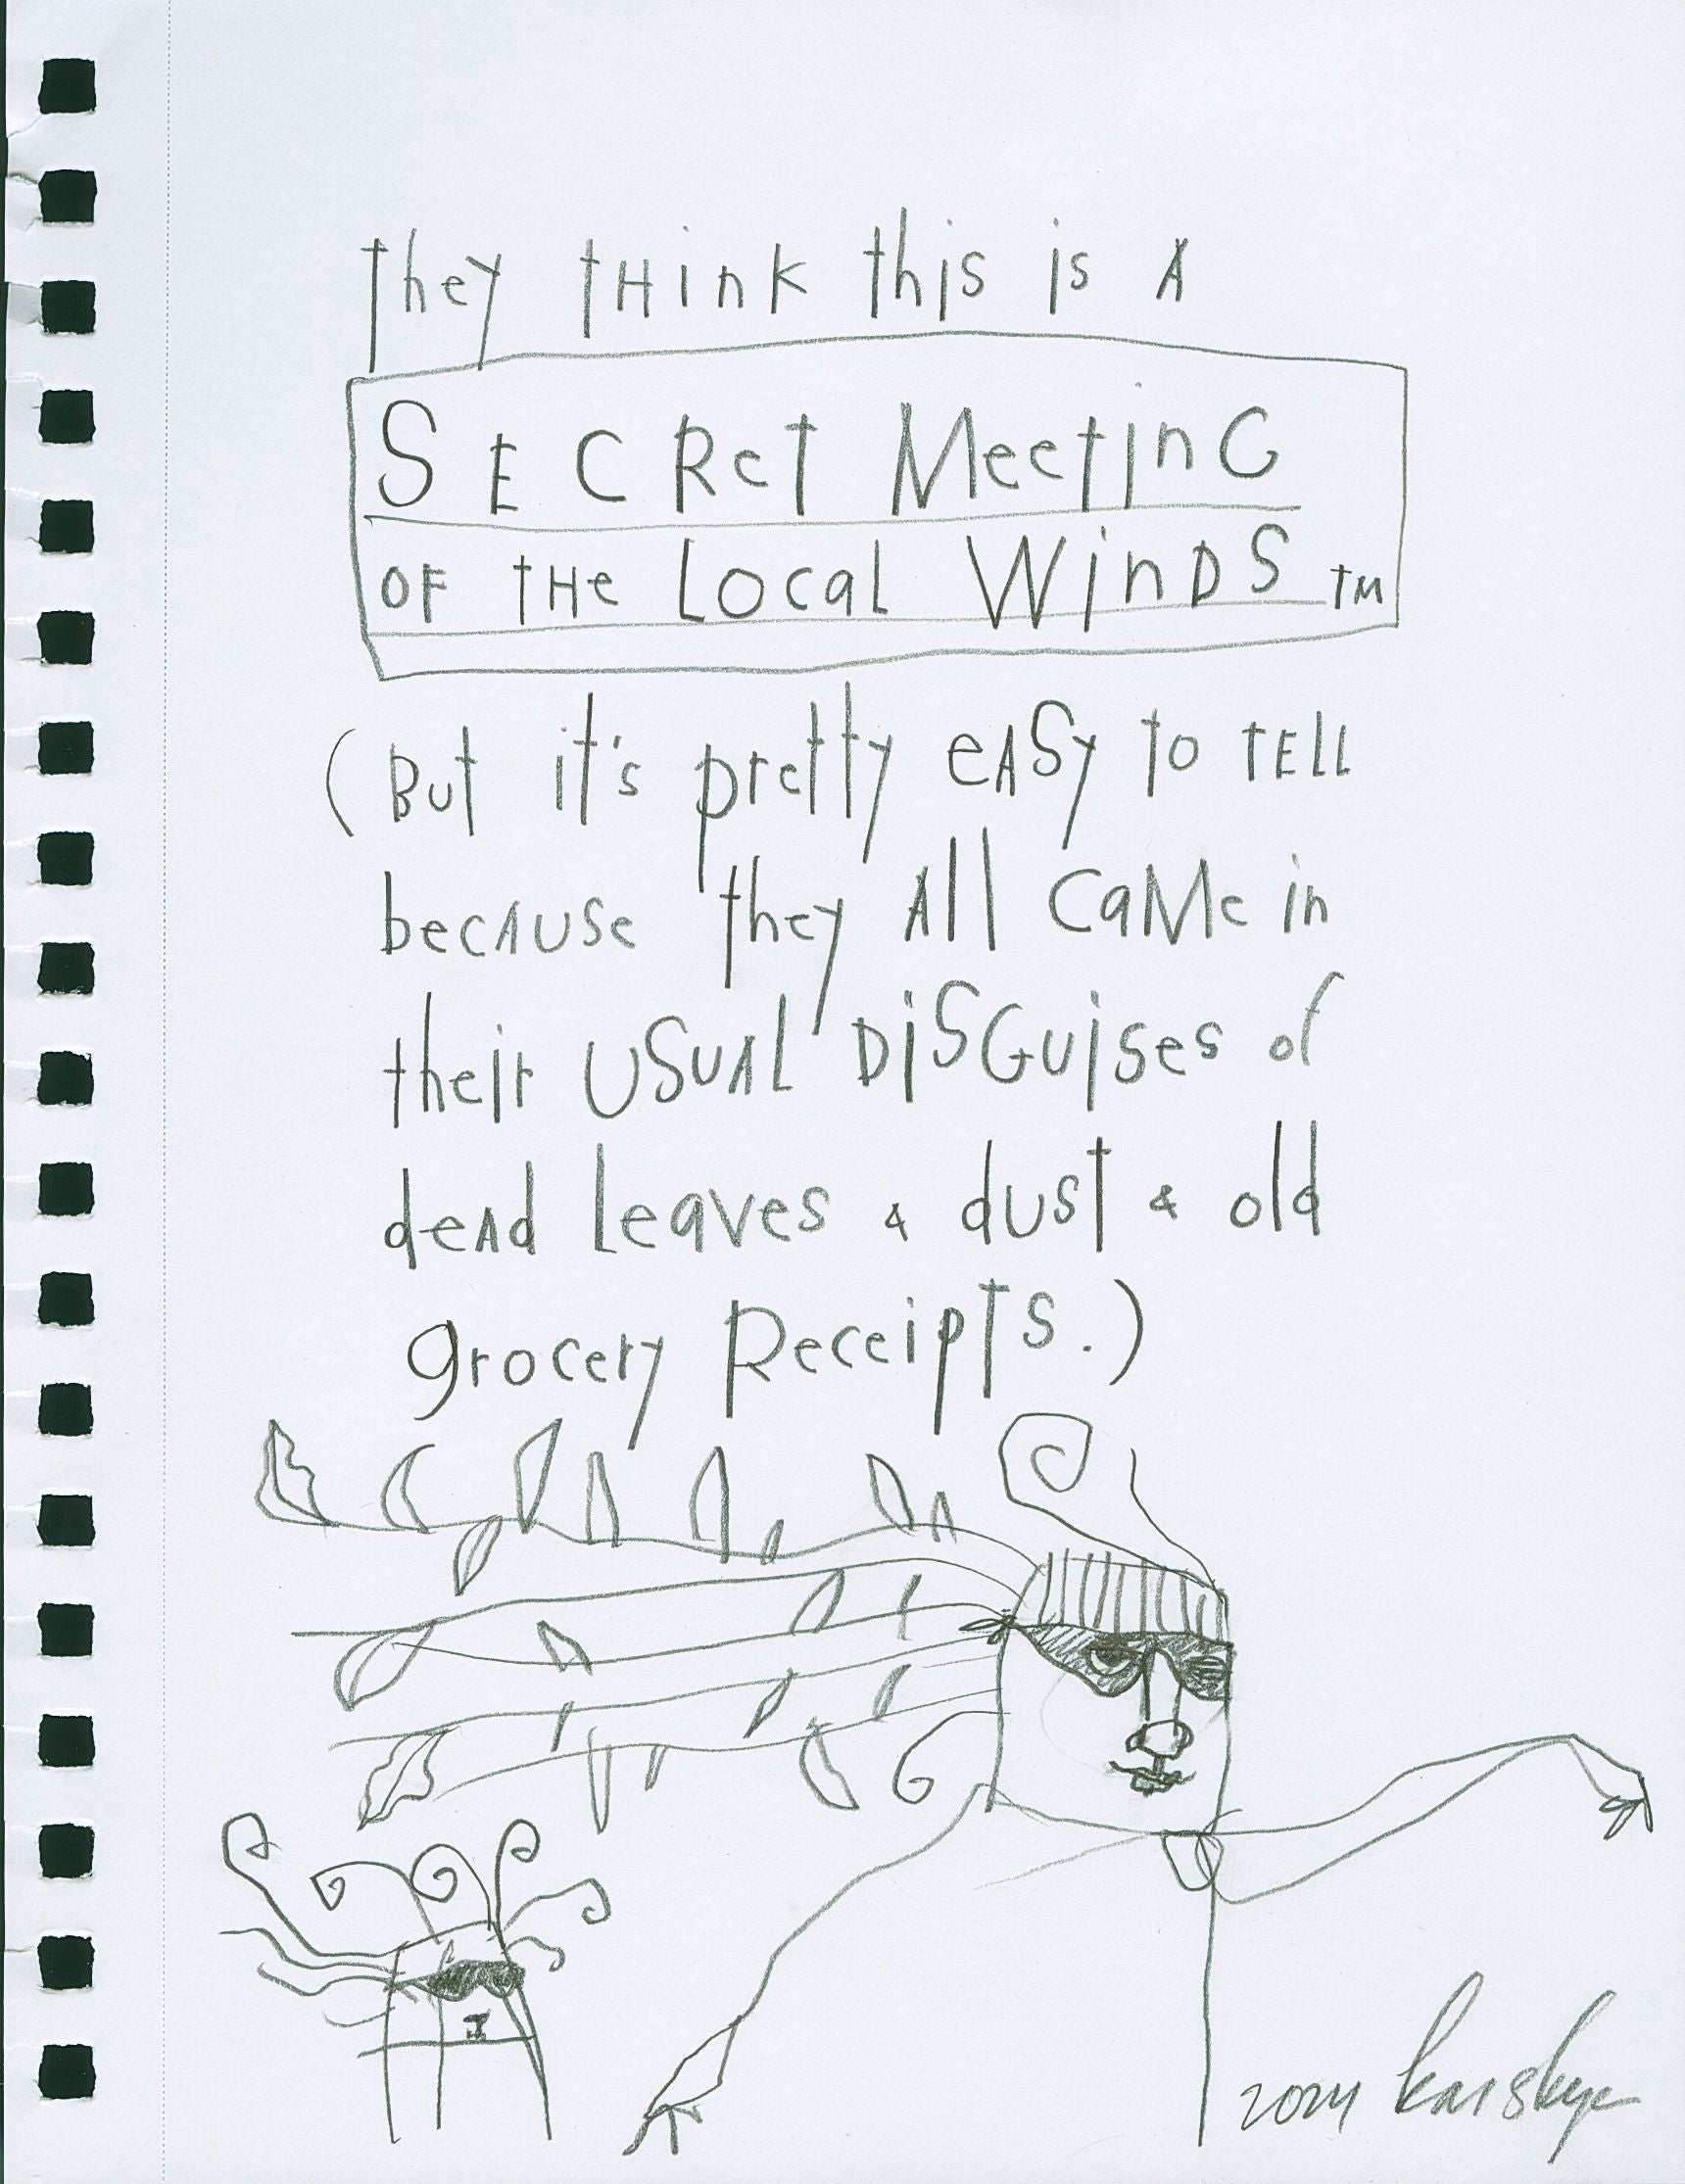 they tHink this is A
SECRet MeetinG
OF tHe Local WinDS TM
(But it's pretty eASy to TELL
becAUSe they All CaMe in
their USUAL DiSGuises of
deAd leaves & dust & old
grocery ReceipTs.)
2024 kai skye